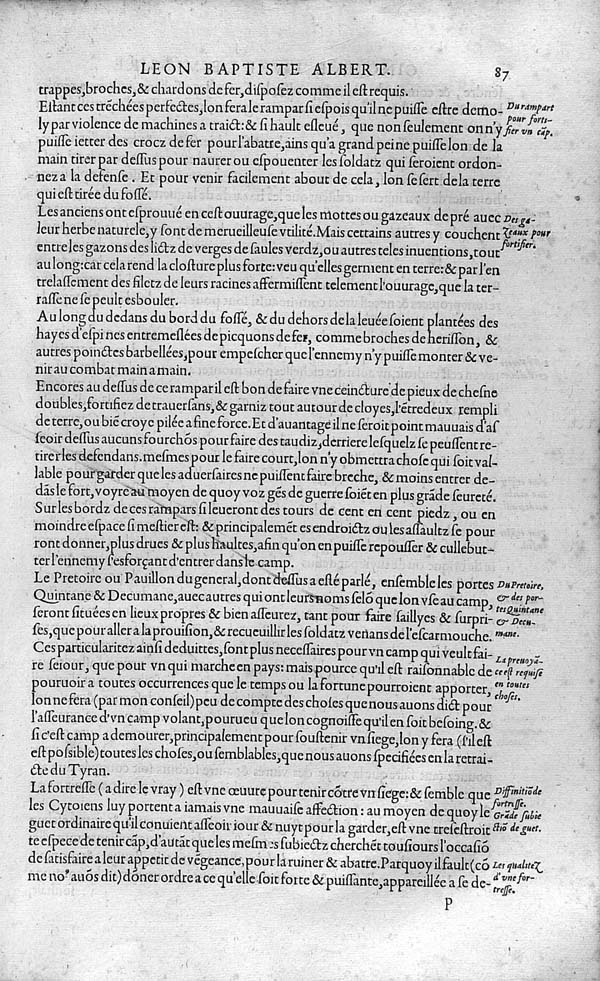 LEON BAPTISTE ALBERT. 87
trappes, broches, & chardons de fer, disposez comme il est requis.
Estant ces trēchées perfectes, lon fera le rampar si espois qu'il ne puisse estre demo-
ly par violence de machines a traict: & si hault esleué, que non seulement on n'y
puisse ietter des crocz de fer pour l'abatre, ains qu'a grand peine puisse lon de la
main tirer par dessus pour naurer ou espouenter les soldatz qui seroient ordon-
nez a la defense. Et pour venir facilement about de cela, lon se sert de la terre
qui est tirée du fossé.
Du rampart
pour forti-
fier vn cāp.
Les anciens ont esprouué en cest ouurage, que les mottes ou gazeaux de pré auec
leur herbe naturele, y sont de merueilleuse vtilité. Mais certains autres y couchent
entre les gazons des lictz de verges de saules verdz, ou autres teles inuentions, tout
au long: car cela rend la closture plus forte: veu qu'elles germent en terre: & par l'en
trelassement des filetz de leurs racines affermissent telement l'ouurage, que la ter-
rasse ne se peult esbouler.
Des ga-
zeaux pour
fortifier.
Au long du dedans du bord du fossé, & du dehors de la leuée soient plantées des
hayes d'espines entremeslées de picquons de fer, comme broches de herisson, &
autres poinctes barbellées, pour empescher que l'ennemy n'y puisse monter & ve-
nir au combat main a main.
Encores au dessus de ce rampar il est bon de faire vne ceincture de pieux de chesne
doubles, fortifiez de trauersans, & garniz tout autour de cloyes, l'ētredeux rempli
de terre, ou biē croye pilée a fine force. Et d'auantage il ne seroit point mauuais d'as
seoir dessus aucuns fourchōs pour faire des taudiz, derriere lesquelz se peussent re-
tirer les defendans. mesmes pour le faire court, lon n'y obmettra chose qui soit val-
lable pour garder que les aduersaires ne puissent faire breche, & moins entrer de-
dās le fort, voyre au moyen de quoy voz gēs de guerre soiēt en plus grāde seureté.
Sur les bordz de ces rampars si leueront des tours de cent en cent piedz, ou en
moindre espace si mestier est: & principalemēt es endroictz ou les assaultz se pour
ront donner, plus drues & plus haultes, afin qu'on en puisse repousser & cullebut-
ter l'ennemy s'esforçant d'entrer dans le camp.
Le Pretoire ou Pauillon du general, dont dessus a esté parlé, ensemble les portes
Quintane & Decumane, auec autres qui ont leurs noms selō que lon vse au camp,
seront situées en lieux propres & bien asseurez, tant pour faire saillyes & surpri-
ses, que pour aller a la prouision, & recueuillir les soldatz venans de l'escarmouche.
Du Pretoire,
& des por-
tes Quintane
& Decu-
mane.
Ces particularitez ainsi deduittes, sont plus necessaires pour vn camp qui veult fai-
re seiour, que pour vn qui marche en pays: mais pource qu'il est raisonnable de
pouruoir a toutes occurrences que le temps ou la fortune pourroient apporter,
lon ne fera (par mon conseil) peu de compte des choses que nous auons dict pour
l'asseurance d'vn camp volant, pourueu que lon cognoisse qu'il en soit besoing. &
si c'est camp a demourer, principalement pour soustenir vn siege, lon y fera (s'il est
est possible) toutes les choses, ou semblables, que nous auons specifiées en la retrai-
cte du Tyran.
La preuoyā-
ce est requise
en toutes
choses.
La fortresse (a dire le vray) est vne œuure pour tenir cōtre vn siege: & semble que
les Cytoiens luy portent a iamais vne mauuaise affection: au moyen de quoy le
guet ordinaire qu'il conuient asseoir iour & nuyt pour la garder, est vne tresestroit
te espece de tenir cāp, d'autāt que les mesmes subiectz cherchēt tousiours l'occasiō
de satisfaire a leur appetit de vēgeance, pour la ruiner & abatre. Parquoy il fault (cō
me noꝰ auōs dit) dōner ordre a ce qu'elle soit forte & puissante, appareillée a se de-
Diffinitiō de
fortresse.
Grāde subie
ctiō de guet.
Les qualitez
d'vne for-
tresse.
P